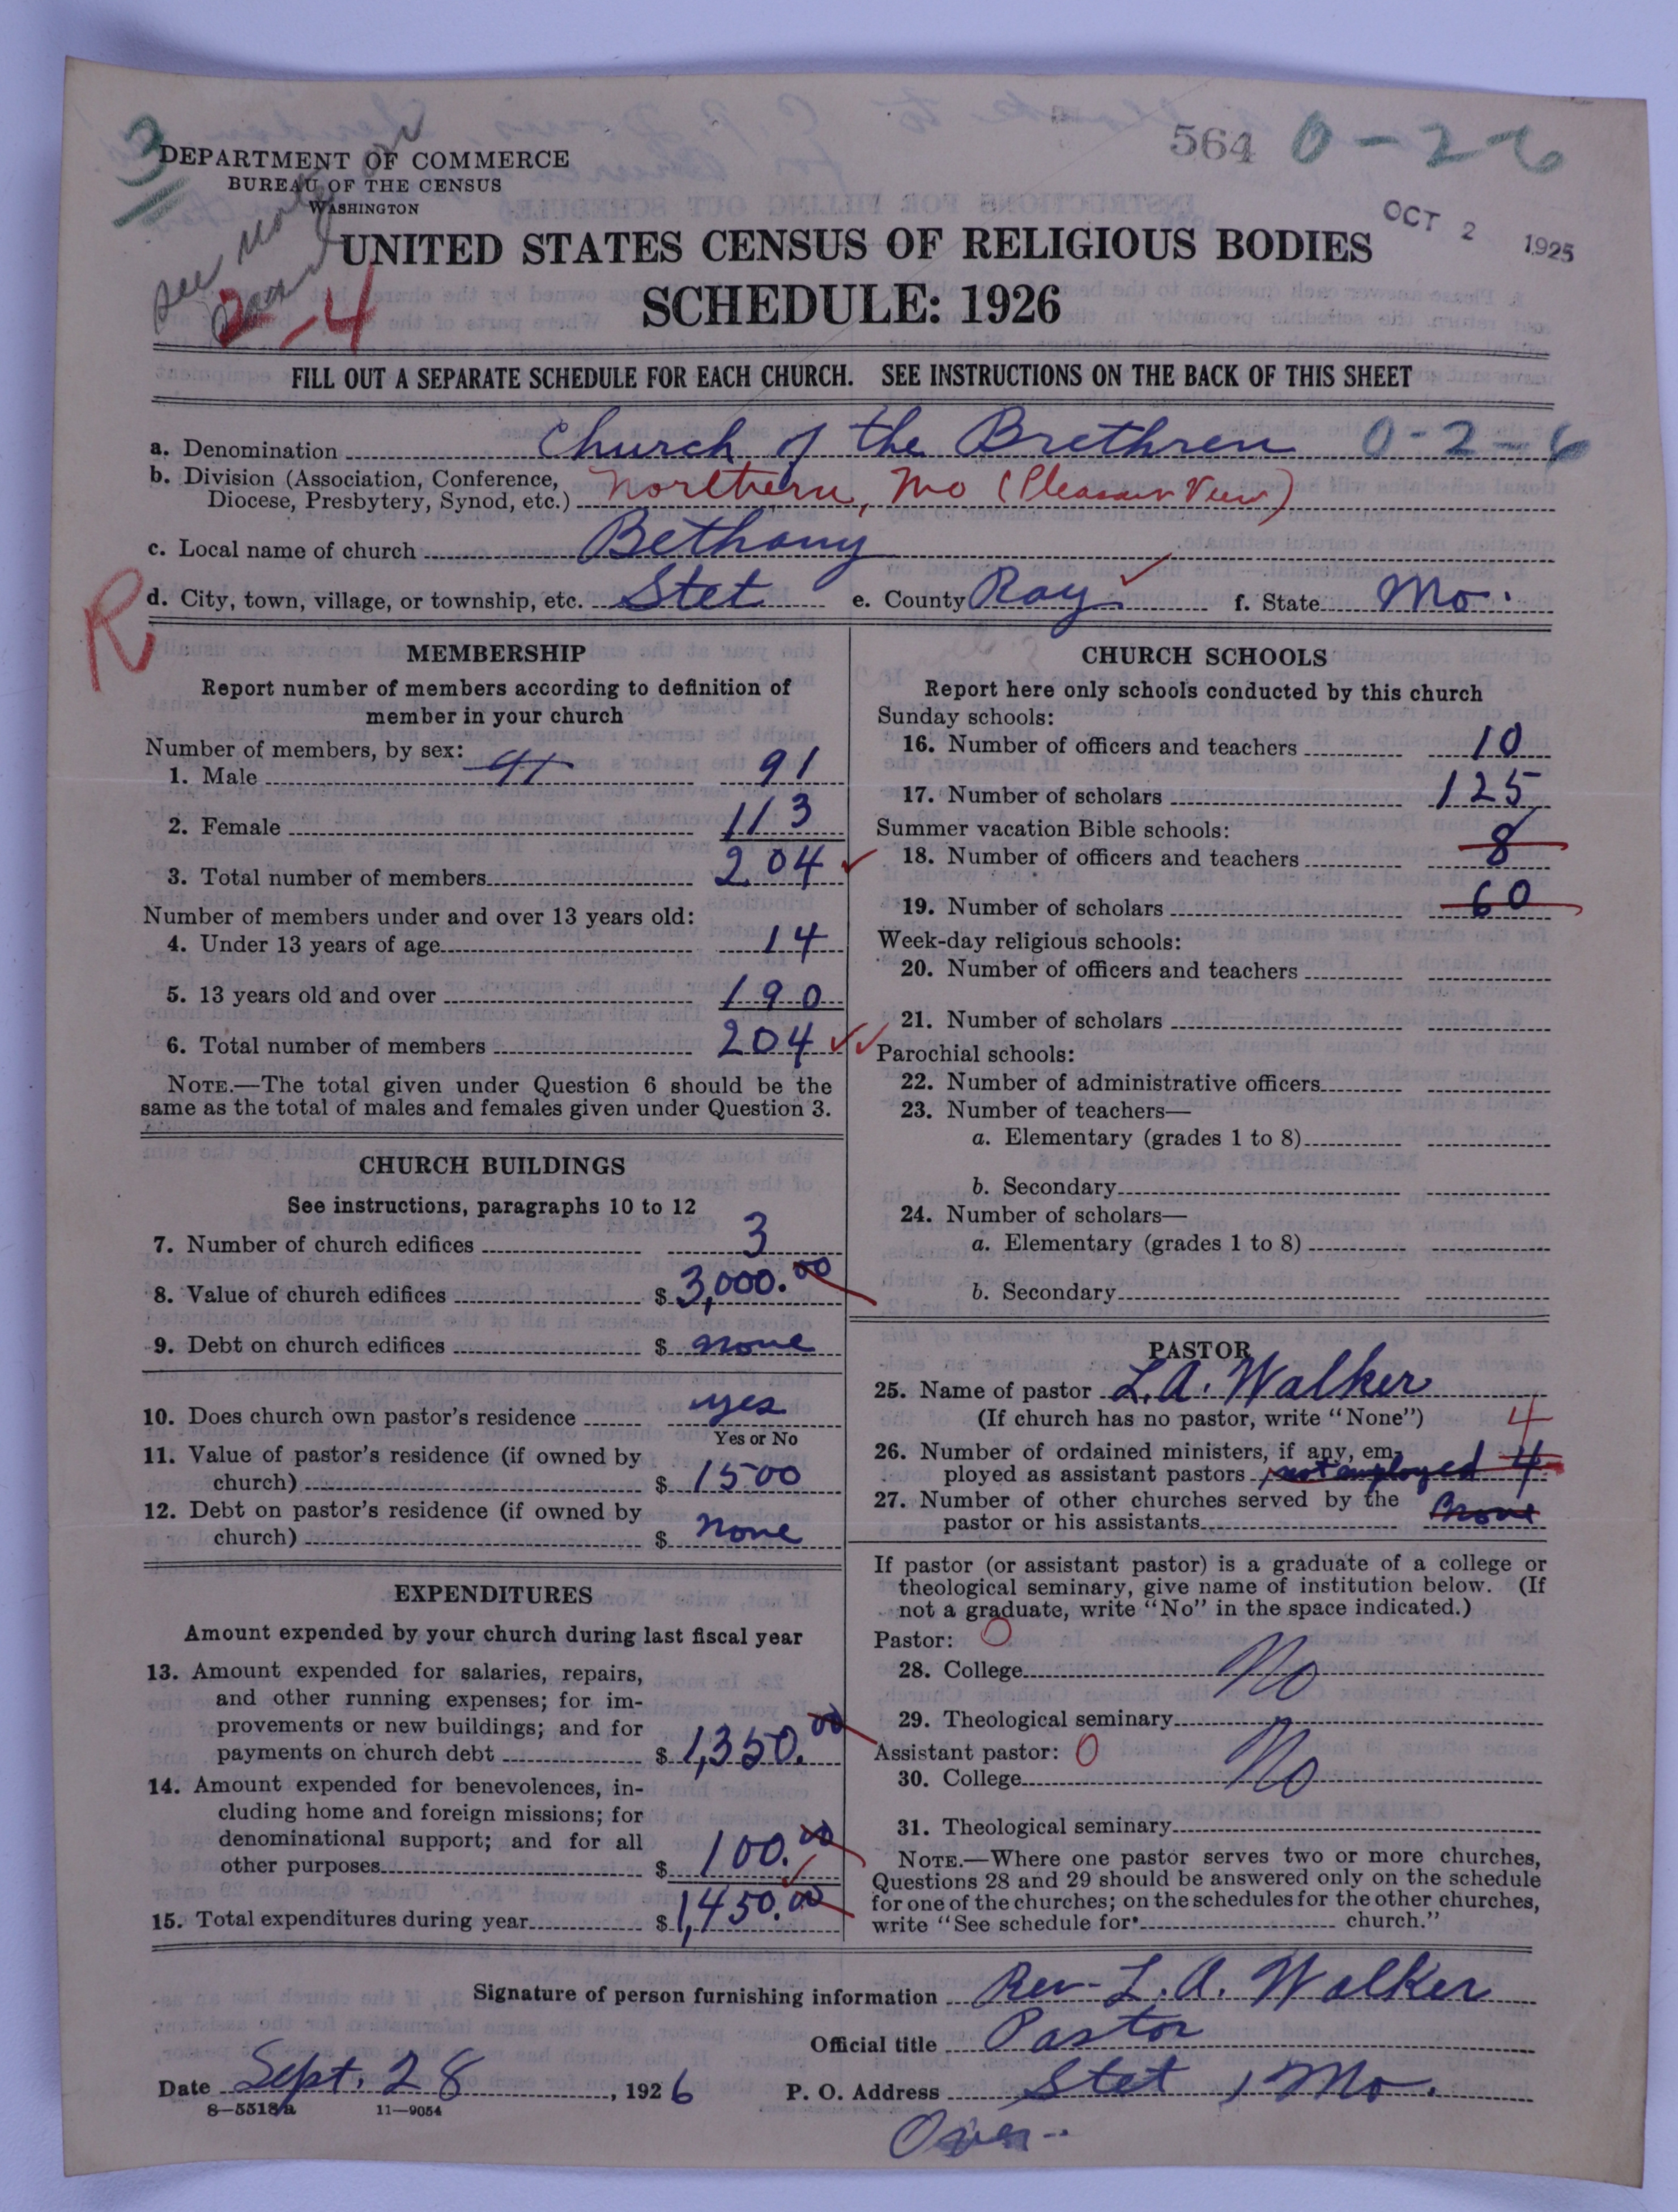 564 0-2-6
3
DEPARTMENT OF COMMERCE
BUREAU OF THE CENSUS
WASHINGTON
OCT 2 1925
See note on
2-4
UNITED STATES CENSUS OF RELIGIOUS BODIES
SCHEDULE: 1926
FILL OUT A SEPARATE SCHEDULE FOR EACH CHURCH. SEE INSTRUCTIONS ON THE BACK OF THIS SHEET
a. Denomination Church of the Brethren 0-2-6
b. Division (Association, Conference,
Diocese, Presbytery, Synod, etc.) Northern, Mo (Pleasant View)
c. Local name of church Bethany
d. City, town, village, or township, etc. Stet e. County Ray f. State Mo.
R
MEMBERSHIP
Report number of members according to definition of
member in your church
Number of members, by sex:
1. Male 91 91
2. Female 113
3. Total number of members 204
Number of members under and over 13 years old:
4. Under 13 years of age 14
5. 13 years old and over 190
6. Total number of members 204
NOTE.—The total given under Question 6 should be the
same as the total of males and females given under Question 3.
CHURCH BUILDINGS
See instructions, paragraphs 10 to 12
7. Number of church edifices 3
8. Value of church edifices $ 3,000.00
9. Debt on church edifices $ none
10. Does church own pastor's residence yes
Yes or No
11. Value of pastor's residence (if owned by
church) $ 1500
12. Debt on pastor's residence (if owned by
church) $ none
EXPENDITURES
Amount expended by your church during last fiscal year
13. Amount expended for salaries, repairs,
and other running expenses; for im-
provements or new buildings; and for
payments on church debt $ 1,350.00
14. Amount expended for benevolences, in-
cluding home and foreign missions; for
denominational support; and for all
other purposes $ 100.00
15. Total expenditures during year $ 1,450.00
CHURCH SCHOOLS
Report here only schools conducted by this church
Sunday schools:
16. Number of officers and teachers 10
17. Number of scholars 125
Summer vacation Bible schools:
18. Number of officers and teachers 8
19. Number of scholars 60
Week-day religious schools:
20. Number of officers and teachers
21. Number of scholars
Parochial schools:
22. Number of administrative officers
23. Number of teachers—
a. Elementary (grades 1 to 8)
b. Secondary
24. Number of scholars—
a. Elementary (grades 1 to 8)
b. Secondary
PASTOR
25. Name of pastor L. A. Walker
(If church has no pastor, write "None") 4
26. Number of ordained ministers, if any, em-
ployed as assistant pastors not employed 4
27. Number of other churches served by the
pastor or his assistants None
If pastor (or assistant pastor) is a graduate of a college or
theological seminary, give name of institution below. (If
not a graduate, write "No" in the space indicated.)
Pastor: 0
28. College No
29. Theological seminary
Assistant pastor: 0
30. College No
31. Theological seminary
NOTE.—Where one pastor serves two or more churches,
Questions 28 and 29 should be answered only on the schedule
for one of the churches; on the schedules for the other churches,
write "See schedule for church."
Signature of person furnishing information Rev. L. A. Walker
Official title Pastor
Date Sept. 28, 1926 P. O. Address Stet, Mo.
8—5518a 11—9054
Over..